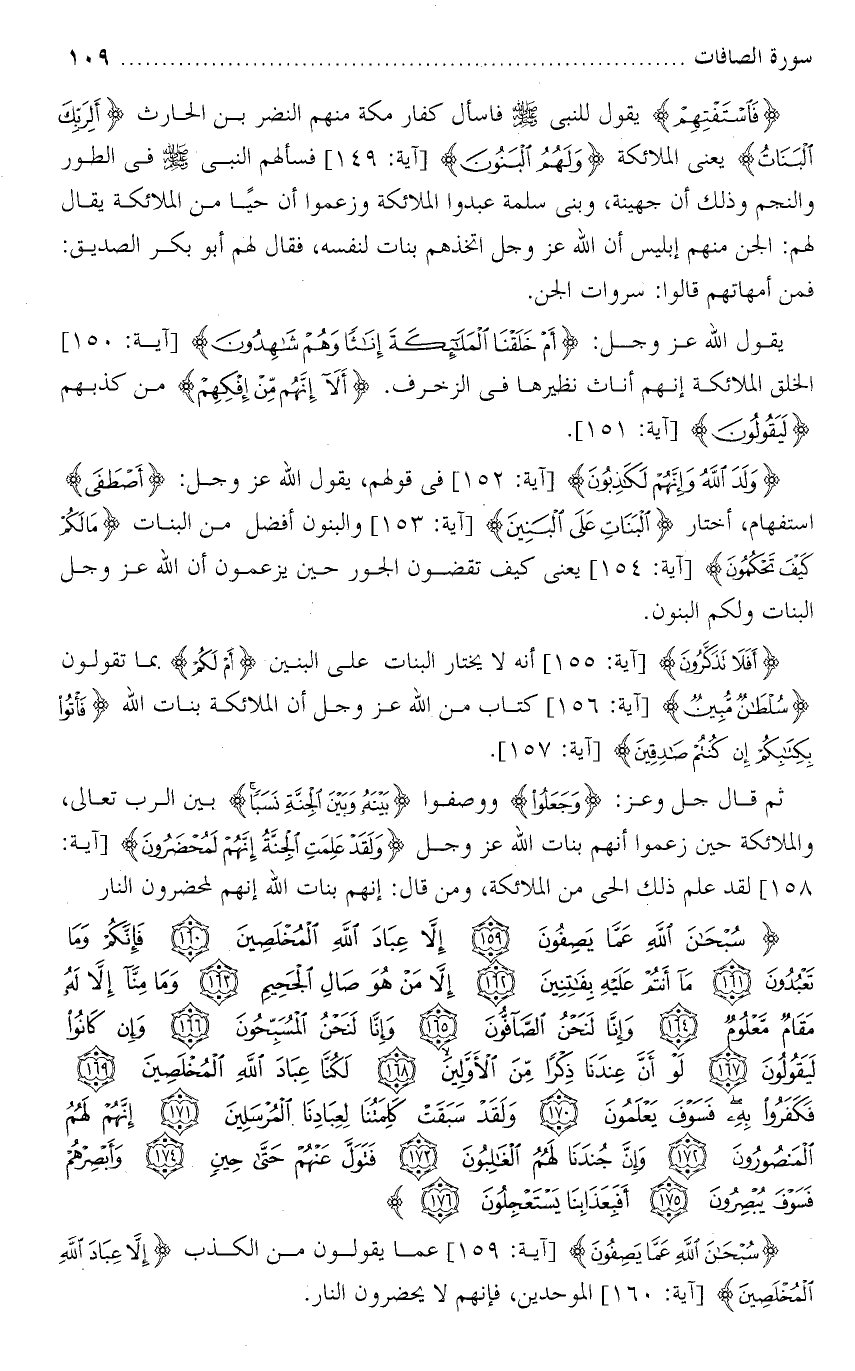 سورة الصافات ........................................................................ ١٠٩
﴿فَٱسۡتَفۡتِهِمۡ﴾ يقول للنبى ﷺ فاسأل كفار مكة منهم النضر بن الحارث ﴿أَلِرَبِّكَ
ٱلۡبَنَاتُ﴾ يعنى الملائكة ﴿وَلَهُمُ ٱلۡبَنُونَ﴾ [آية: ١٤٩] فسألهم النبى ﷺ فى الطور
والنجم وذلك أن جهينة، وبنى سلمة عبدوا الملائكة وزعموا أن حيًا من الملائكة يقال
لهم: الجن منهم إبليس أن الله عز وجل اتخذهم بنات لنفسه، فقال لهم أبو بكر الصديق:
فمن أمهاتهم قالوا: سروات الجن.
يقول الله عز وجل: ﴿أَمۡ خَلَقۡنَا ٱلۡمَلَٰٓئِكَةَ إِنَٰثٗا وَهُمۡ شَٰهِدُونَ﴾ [آية: ١٥٠]
الخلق الملائكة إنهم أناث نظيرها فى الزخرف. ﴿أَلَآ إِنَّهُم مِّنۡ إِفۡكِهِمۡ﴾ من كذبهم
﴿لَيَقُولُونَ﴾ [آية: ١٥١].
﴿وَلَدَ ٱللَّهُ وَإِنَّهُمۡ لَكَٰذِبُونَ﴾ [آية: ١٥٢] فى قولهم، يقول الله عز وجل: ﴿أَصۡطَفَى﴾
استفهام، أختار ﴿ٱلۡبَنَاتِ عَلَى ٱلۡبَنِينَ﴾ [آية: ١٥٣] والبنون أفضل من البنات ﴿مَا لَكُمۡ
كَيۡفَ تَحۡكُمُونَ﴾ [آية: ١٥٤] يعنى كيف تقضون الجور حين يزعمون أن الله عز وجل
البنات ولكم البنون.
﴿أَفَلَا تَذَكَّرُونَ﴾ [آية: ١٥٥] أنه لا يختار البنات على البنين ﴿أَمۡ لَكُمۡ﴾ بما تقولون
﴿سُلۡطَٰنٞ مُّبِينٞ﴾ [آية: ١٥٦] كتاب من الله عز وجل أن الملائكة بنات الله ﴿فَأۡتُواْ
بِكِتَٰبِكُمۡ إِن كُنتُمۡ صَٰدِقِينَ﴾ [آية: ١٥٧].
ثم قال جل وعز: ﴿وَجَعَلُواْ﴾ ووصفوا ﴿بَيۡنَهُۥ وَبَيۡنَ ٱلۡجِنَّةِ نَسَبٗاۚ﴾ بين الرب تعالى،
والملائكة حين زعموا أنهم بنات الله عز وجل ﴿وَلَقَدۡ عَلِمَتِ ٱلۡجِنَّةُ إِنَّهُمۡ لَمُحۡضَرُونَ﴾ [آية:
١٥٨] لقد علم ذلك الحى من الملائكة، ومن قال: إنهم بنات الله إنهم لمحضرون النار
﴿ سُبۡحَٰنَ ٱللَّهِ عَمَّا يَصِفُونَ ١٥٩ إِلَّا عِبَادَ ٱللَّهِ ٱلۡمُخۡلَصِينَ ١٦٠ فَإِنَّكُمۡ وَمَا
تَعۡبُدُونَ ١٦١ مَآ أَنتُمۡ عَلَيۡهِ بِفَٰتِنِينَ ١٦٢ إِلَّا مَنۡ هُوَ صَالِ ٱلۡجَحِيمِ ١٦٣ وَمَا مِنَّآ إِلَّا لَهُۥ
مَقَامٞ مَّعۡلُومٞ ١٦٤ وَإِنَّا لَنَحۡنُ ٱلصَّآفُّونَ ١٦٥ وَإِنَّا لَنَحۡنُ ٱلۡمُسَبِّحُونَ ١٦٦ وَإِن كَانُواْ
لَيَقُولُونَ ١٦٧ لَوۡ أَنَّ عِندَنَا ذِكۡرٗا مِّنَ ٱلۡأَوَّلِينَ ١٦٨ لَكُنَّا عِبَادَ ٱللَّهِ ٱلۡمُخۡلَصِينَ ١٦٩
فَكَفَرُواْ بِهِۦۖ فَسَوۡفَ يَعۡلَمُونَ ١٧٠ وَلَقَدۡ سَبَقَتۡ كَلِمَتُنَا لِعِبَادِنَا ٱلۡمُرۡسَلِينَ ١٧١ إِنَّهُمۡ لَهُمُ
ٱلۡمَنصُورُونَ ١٧٢ وَإِنَّ جُندَنَا لَهُمُ ٱلۡغَٰلِبُونَ ١٧٣ فَتَوَلَّ عَنۡهُمۡ حَتَّىٰ حِينٖ ١٧٤ وَأَبۡصِرۡهُمۡ
فَسَوۡفَ يُبۡصِرُونَ ١٧٥ أَفَبِعَذَابِنَا يَسۡتَعۡجِلُونَ ١٧٦ ﴾
﴿سُبۡحَٰنَ ٱللَّهِ عَمَّا يَصِفُونَ﴾ [آية: ١٥٩] عما يقولون من الكذب ﴿إِلَّا عِبَادَ ٱللَّهِ
ٱلۡمُخۡلَصِينَ﴾ [آية: ١٦٠] الموحدين، فإنهم لا يحضرون النار.